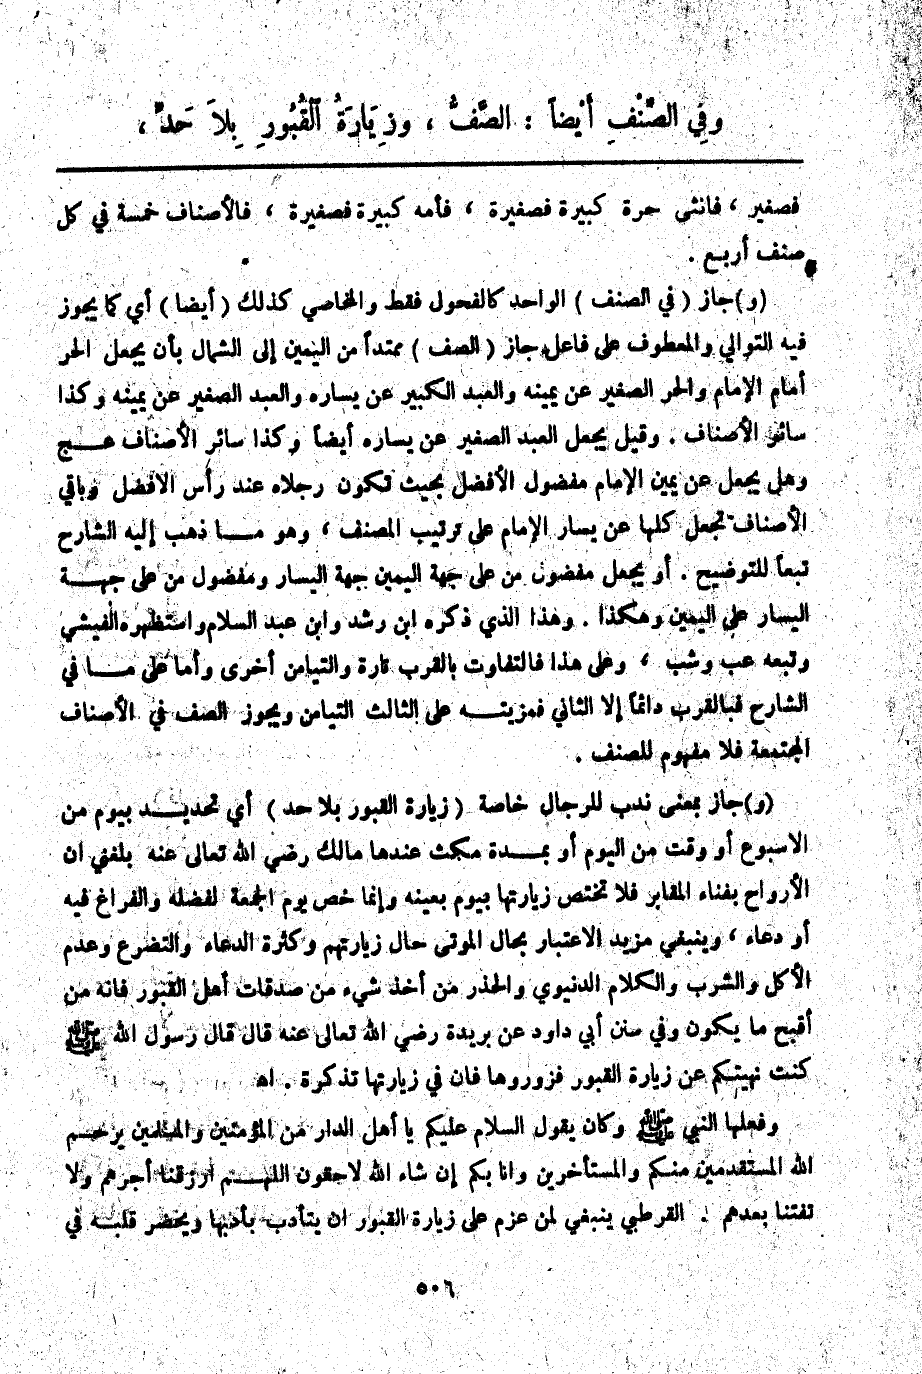 وَفِي الصِّنْفِ أَيْضاً : الصَّفُّ ، وَزِيَارَةُ الْقُبُورِ بِلاَ حَدٍّ ،
فصغير ، فانثى حرة كبيرة فصغيرة ، فأمه كبيرة فصغيرة ، فالأصناف خمسة في كل
صنف أربع .
(و)جاز (في الصنف) الواحد كالفحول فقط والخاصي كذلك (أيضا) أي كما يجوز
فيه التوالي والمعطوف على فاعل جاز (الصف) ممتداً من اليمين إلى الشمال بأن يجعل الحر
أمام الإمام والحر الصغير عن يمينه والعبد الكبير عن يساره والعبد الصغير عن يمينه وكذا
سائر الأصناف . وقيل يجعل العبد الصغير عن يساره أيضاً وكذا سائر الأصناف عــج
وهل يجعل عن يمين الإمام مفضول الأفضل بحيث تكون رجلاه عند رأس الافضل وباقي
الأصناف تجعل كلها عن يسار الإمام على ترتيب المصنف ، وهو مــا ذهب إليه الشارح
تبعاً للتوضيح . أو يجعل مفضول من على جهة اليمين جهة اليسار ومفضول من على جهــة
اليسار على اليمين وهكذا . وهذا الذي ذكره ابن رشد وابن عبد السلام واستظهره الفيشي
وتبعه عب وشب ، وعلى هذا فالتفاوت بالقرب تارة والتيامن أخرى وأما على مــا في
الشارح فبالقرب دائماً إلا الثاني فمزيتــه على الثالث التيامن ويجوز الصف في الأصناف
المجتمعة فلا مفهوم للصنف .
(و)جاز بمعنى ندب للرجال خاصة (زيارة القبور بلا حد) أي تحديــد بيوم من
الاسبوع أو وقت من اليوم أو بمــدة مكث عندها مالك رضي الله تعالى عنه بلغني ان
الأرواح بفناء المقابر فلا تختص زيارتها بيوم بعينه وإنما خص يوم الجمعة لفضله والفراغ فيه
أو دعاء ، وينبغي مزيد الاعتبار بحال الموتى حال زيارتهم وكثرة الدعاء والتضرع وعدم
الأكل والشرب والكلام الدنيوي والحذر من أخذ شيء من صدقات أهل القبور فانه من
أقبح ما يكون وفي سنن أبي داود عن بريدة رضي الله تعالى عنه قال قال رسول الله ﷺ
كنت نهيتكم عن زيارة القبور فزوروها فان في زيارتها تذكرة . اه
وفعلها النبي ﷺ وكان يقول السلام عليكم يا أهل الدار من المؤمنين والمسلمين يرحــم
الله المستقدمين منكم والمستأخرين وانا بكم إن شاء الله لاحقون اللهــم ارزقنا أجرهم ولا
تفتنا بعدهم . القرطبي ينبغي لمن عزم على زيارة القبور ان يتأدب بأدبها ويحضر قلبــه في
٥٠٦